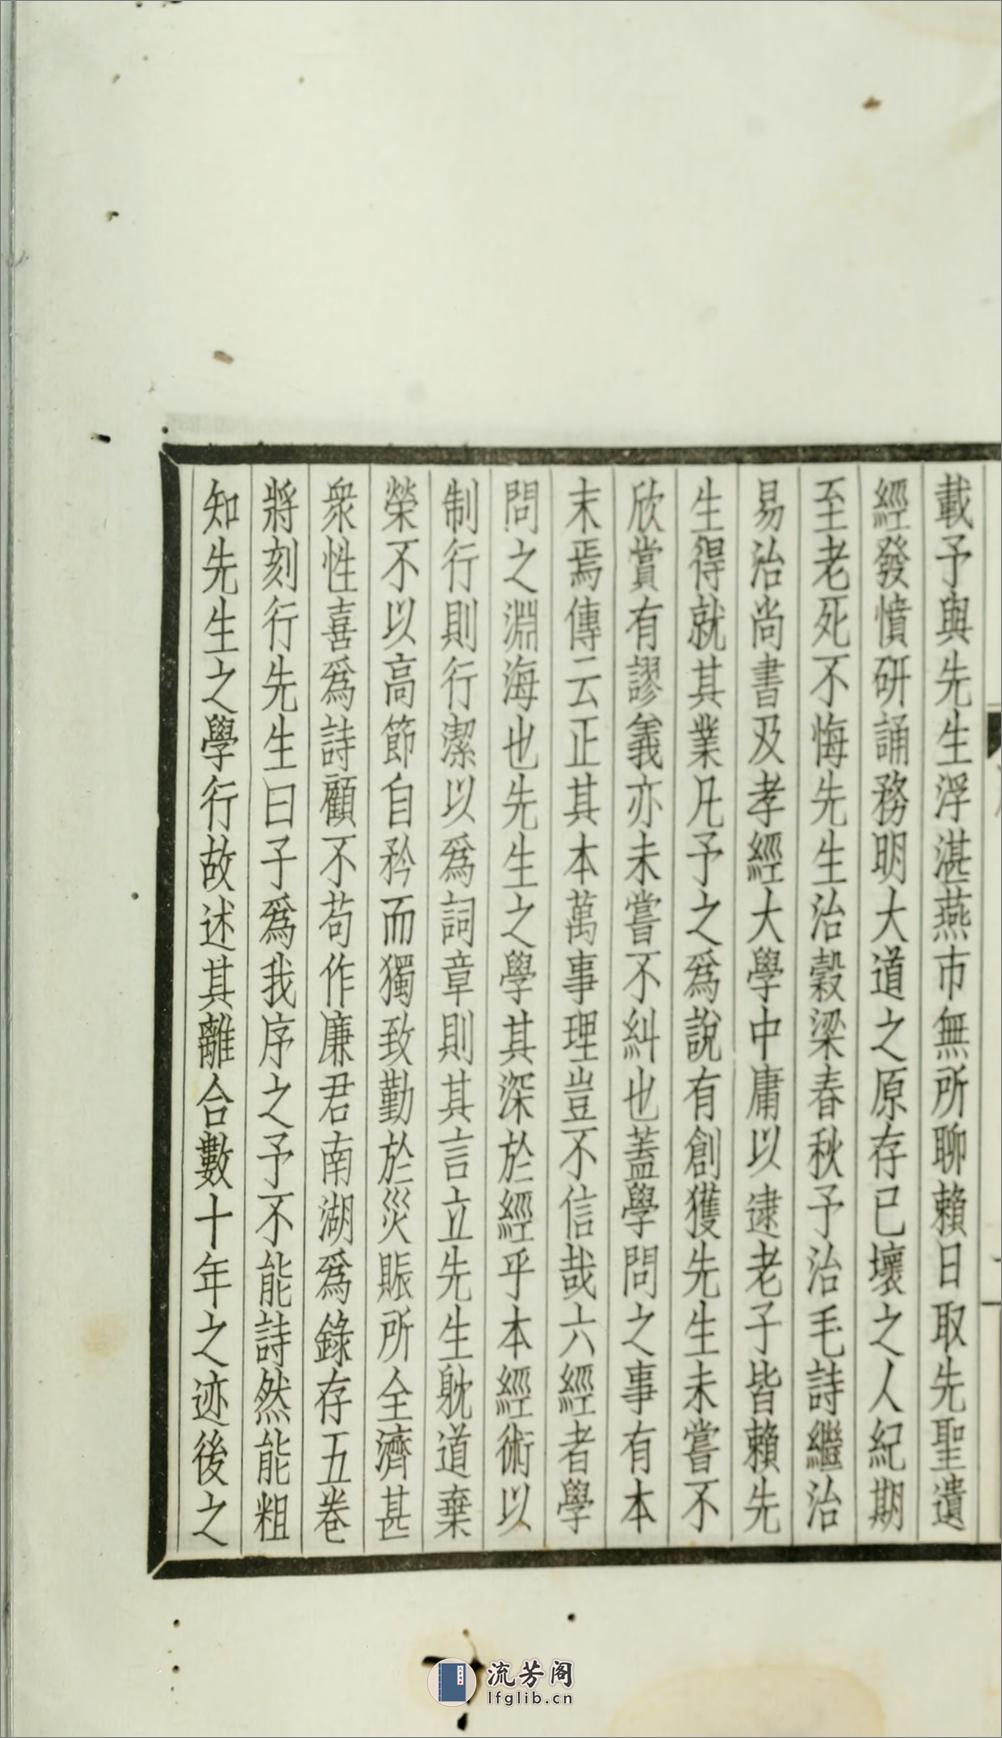 載予與先生浮湛燕市無所聊賴日取先聖遺
經發憤研誦務明大道之原存已壞之人紀期
至老死不悔先生治穀梁春秋予治毛詩繼治
易治尚書及孝經大學中庸以逮老子皆賴先
生得就其業凡予之爲說有創獲先生未嘗不
欣賞有謬義亦未嘗不糾也蓋學問之事有本
末焉傳云正其本萬事理豈不信哉六經者學
問之淵海也先生之學其深於經乎本經術以
制行則行潔以爲詞章則其言立先生躭道棄
榮不以高節自矜而獨致勤於災賑所全濟甚
衆性喜爲詩顧不苟作廉君南湖爲錄存五卷
將刻行先生曰子爲我序之予不能詩然能粗
知先生之學行故述其離合數十年之迹後之
流芳阁
lfglib.cn